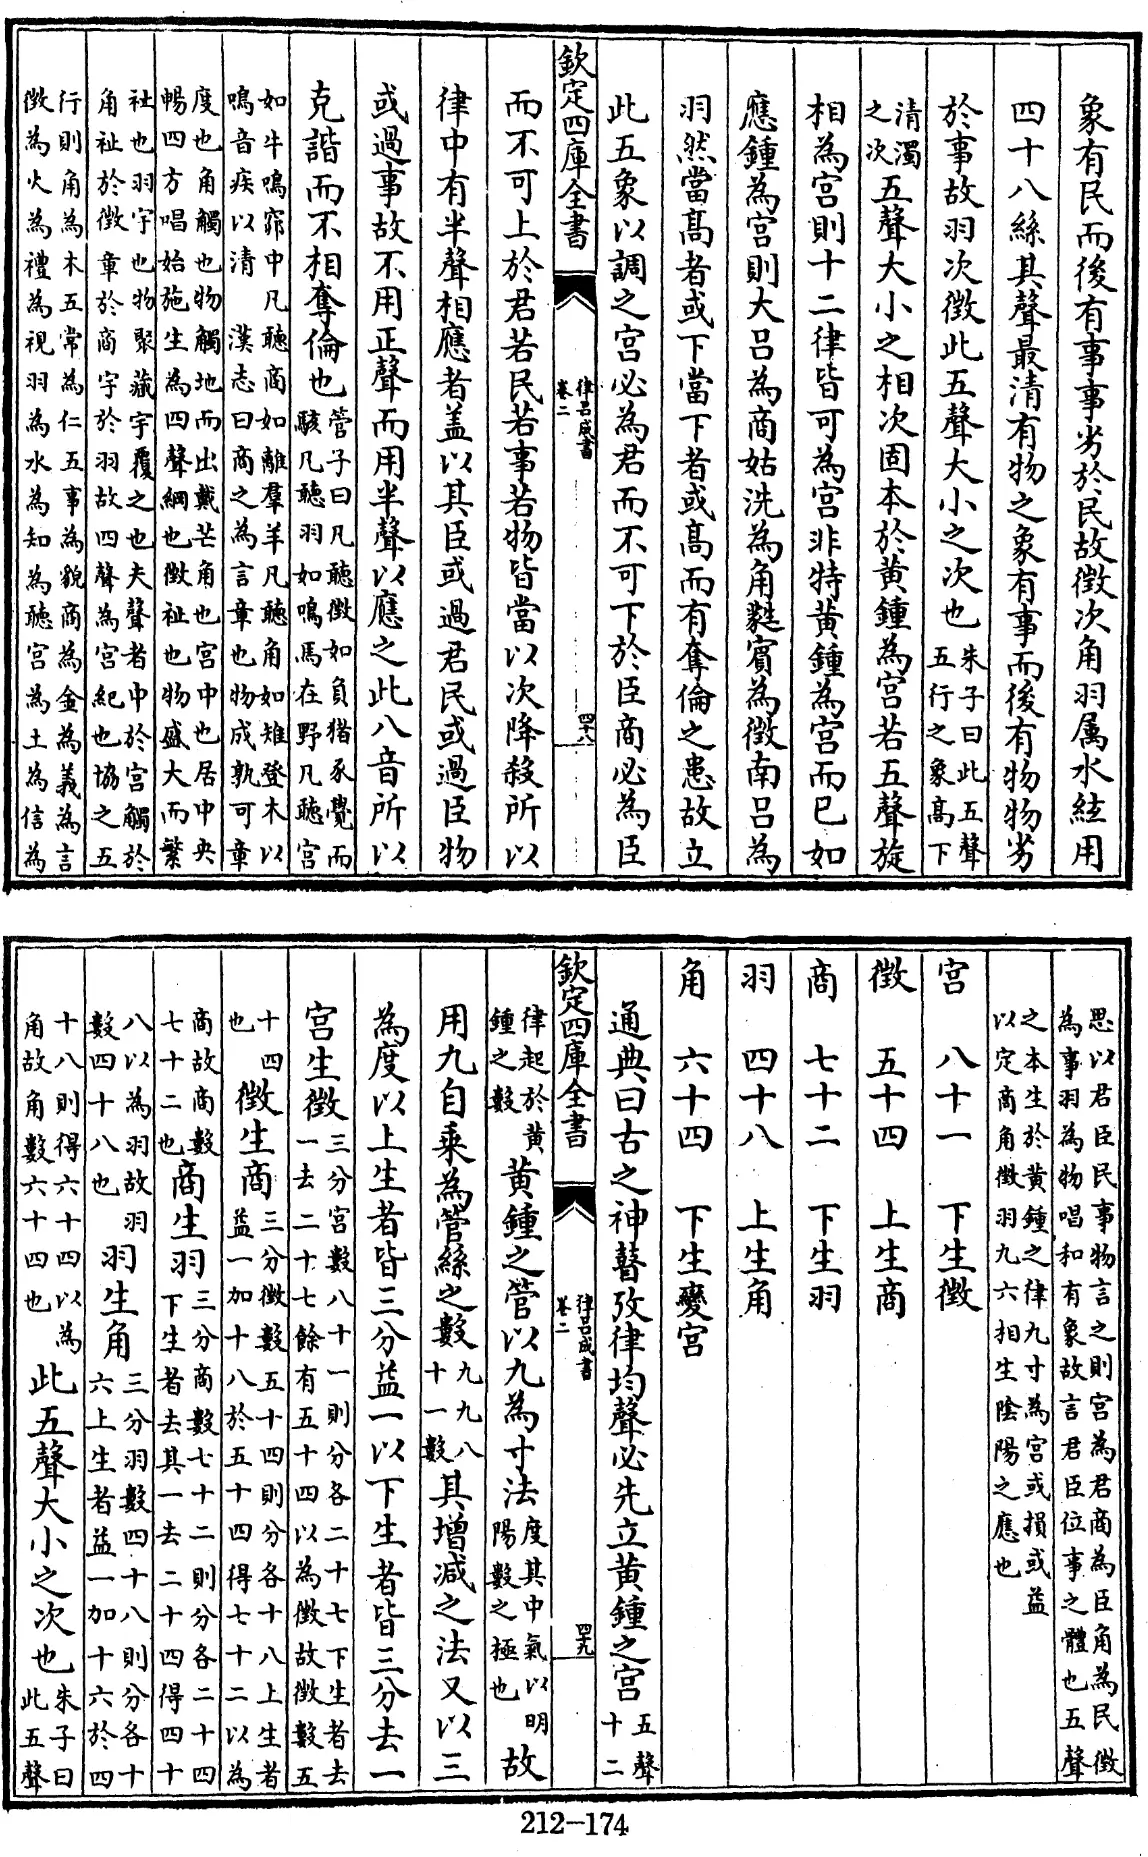 象有民而後有事事劣於民故徴次角羽属水絃用
四十八絲其聲最清有物之象有事而後有物物劣
於事故羽次徴此五聲大小之次也朱子曰此五聲
五行之象高下
清濁
之次五聲大小之相次固本於黄鍾為宫若五聲旋
相為宫則十二律皆可為宫非特黄鍾為宫而已如
應鍾為宫則大吕為商姑洗為角蕤賓為徴南吕為
羽然當高者或下當下者或高而有奪倫之患故立
此五象以調之宫必為君而不可下於臣商必為臣
欽定四庫全書
律吕成書
卷二
四十八
而不可上於君若民若事若物皆當以次降殺所以
律中有半聲相應者盖以其臣或過君民或過臣物
或過事故不用正聲而用半聲以應之此八音所以
克諧而不相奪倫也管子曰凡聽徴如負猪豕覺而
駭凡聽羽如鳴馬在野凡聽宫
如牛鳴窌中凡聽商如離羣羊凡聽角如雉登木以
鳴音疾以清 漢志曰商之為言章也物成孰可章
度也角觸也物觸地而出戴芒角也宫中也居中央
暢四方唱始施生為四聲綱也徴祉也物盛大而繁
祉也羽宇也物聚藏宇覆之也夫聲者中於宫觸於
角祉於徴章於商宇於羽故四聲為宫紀也協之五
行則角為木五常為仁五事為貌商為金為義為言
徴為火為禮為視羽為水為知為聽宫為土為信為
思以君臣民事物言之則宫為君商為臣角為民徴
為事羽為物唱和有象故言君臣位事之體也五聲
之本生於黄鍾之律九寸為宫或損或益
以定商角徴羽九六相生陰陽之應也
宫 八十一 下生徴
徴 五十四 上生商
商 七十二 下生羽
羽 四十八 上生角
角 六十四 下生變宫
通典曰古之神瞽攷律均聲必先立黄鍾之宫五聲
十二
欽定四庫全書
律吕成書
卷二
四十九
律起於黄
鍾之數黄鍾之管以九為寸法度其中氣以明
陽數之極也故
用九自乘為管絲之數九九八
十一數其增减之法又以三
為度以上生者皆三分益一以下生者皆三分去一
宫生徴三分宫數八十一則分各二十七下生者去
一去二十七餘有五十四以為徴故徴數五
十四
也徴生商三分徴數五十四則分各十八上生者
益一加十八於五十四得七十二以為
商故商數
七十二也商生羽三分商數七十二則分各二十四
下生者去其一去二十四得四十
八以為羽故羽
數四十八也羽生角三分羽數四十八則分各十
六上生者益一加十六於四
十八則得六十四以為
角故角數六十四也此五聲大小之次也朱子曰
此五聲
212-174